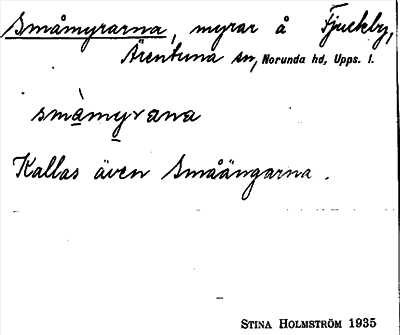 Småmyrarna, myrar å Fjuckby,
Ärentuna sn, Norunda hd, Upps. l.
småmyrana
Kallas även Småängarna.
STINA HOLMSTRÖM 1935